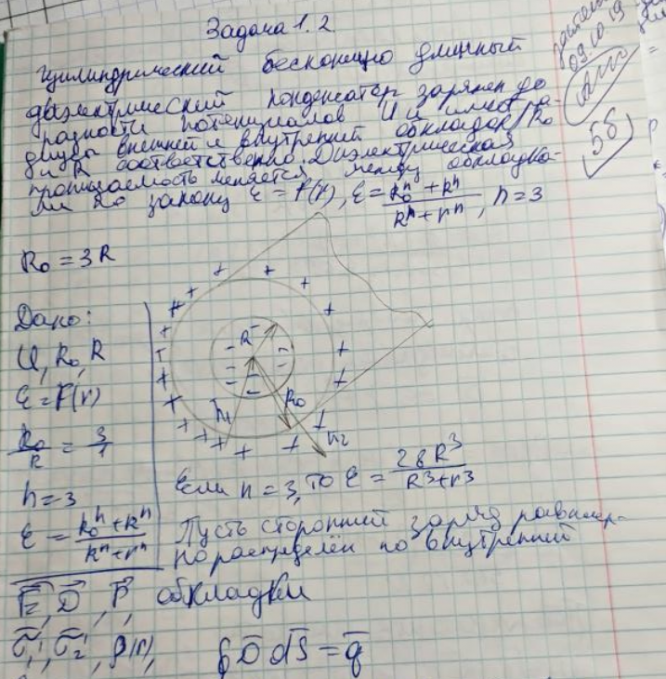 Задача 1.2
Цилиндрический бесконечно длинный
диэлектрический конденсатор заряжен до
разности потенциалов U и имеет ра-
диусы внешней и внутренней обкладок R₀
и R соответственно. Диэлектрическая
проницаемость меняется между обкладка-
ми по закону ε = f(r), ε = (R₀ⁿ + Rⁿ)/(Rⁿ + rⁿ), n = 3
09.10.19
56
R₀ = 3R
Дано:
U, R₀, R
ε = f(r)
R₀/R = 3/1
n = 3
ε = (R₀ⁿ + Rⁿ)/(Rⁿ + rⁿ)
R
R₀
h₁
h₂
Если n = 3, то ε = 28R³/(R³ + r³)
Пусть сторонний заряд равномер-
но распределён по внутренней
обкладки
E, D, P
σ₁', σ₂', ρ(r),
∮ D dS = q